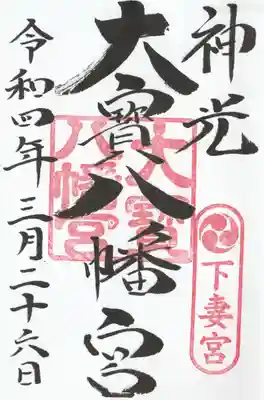 神光
大寳八幡宮
大寳
八幡宮
下妻宮
令和四年三月二十六日